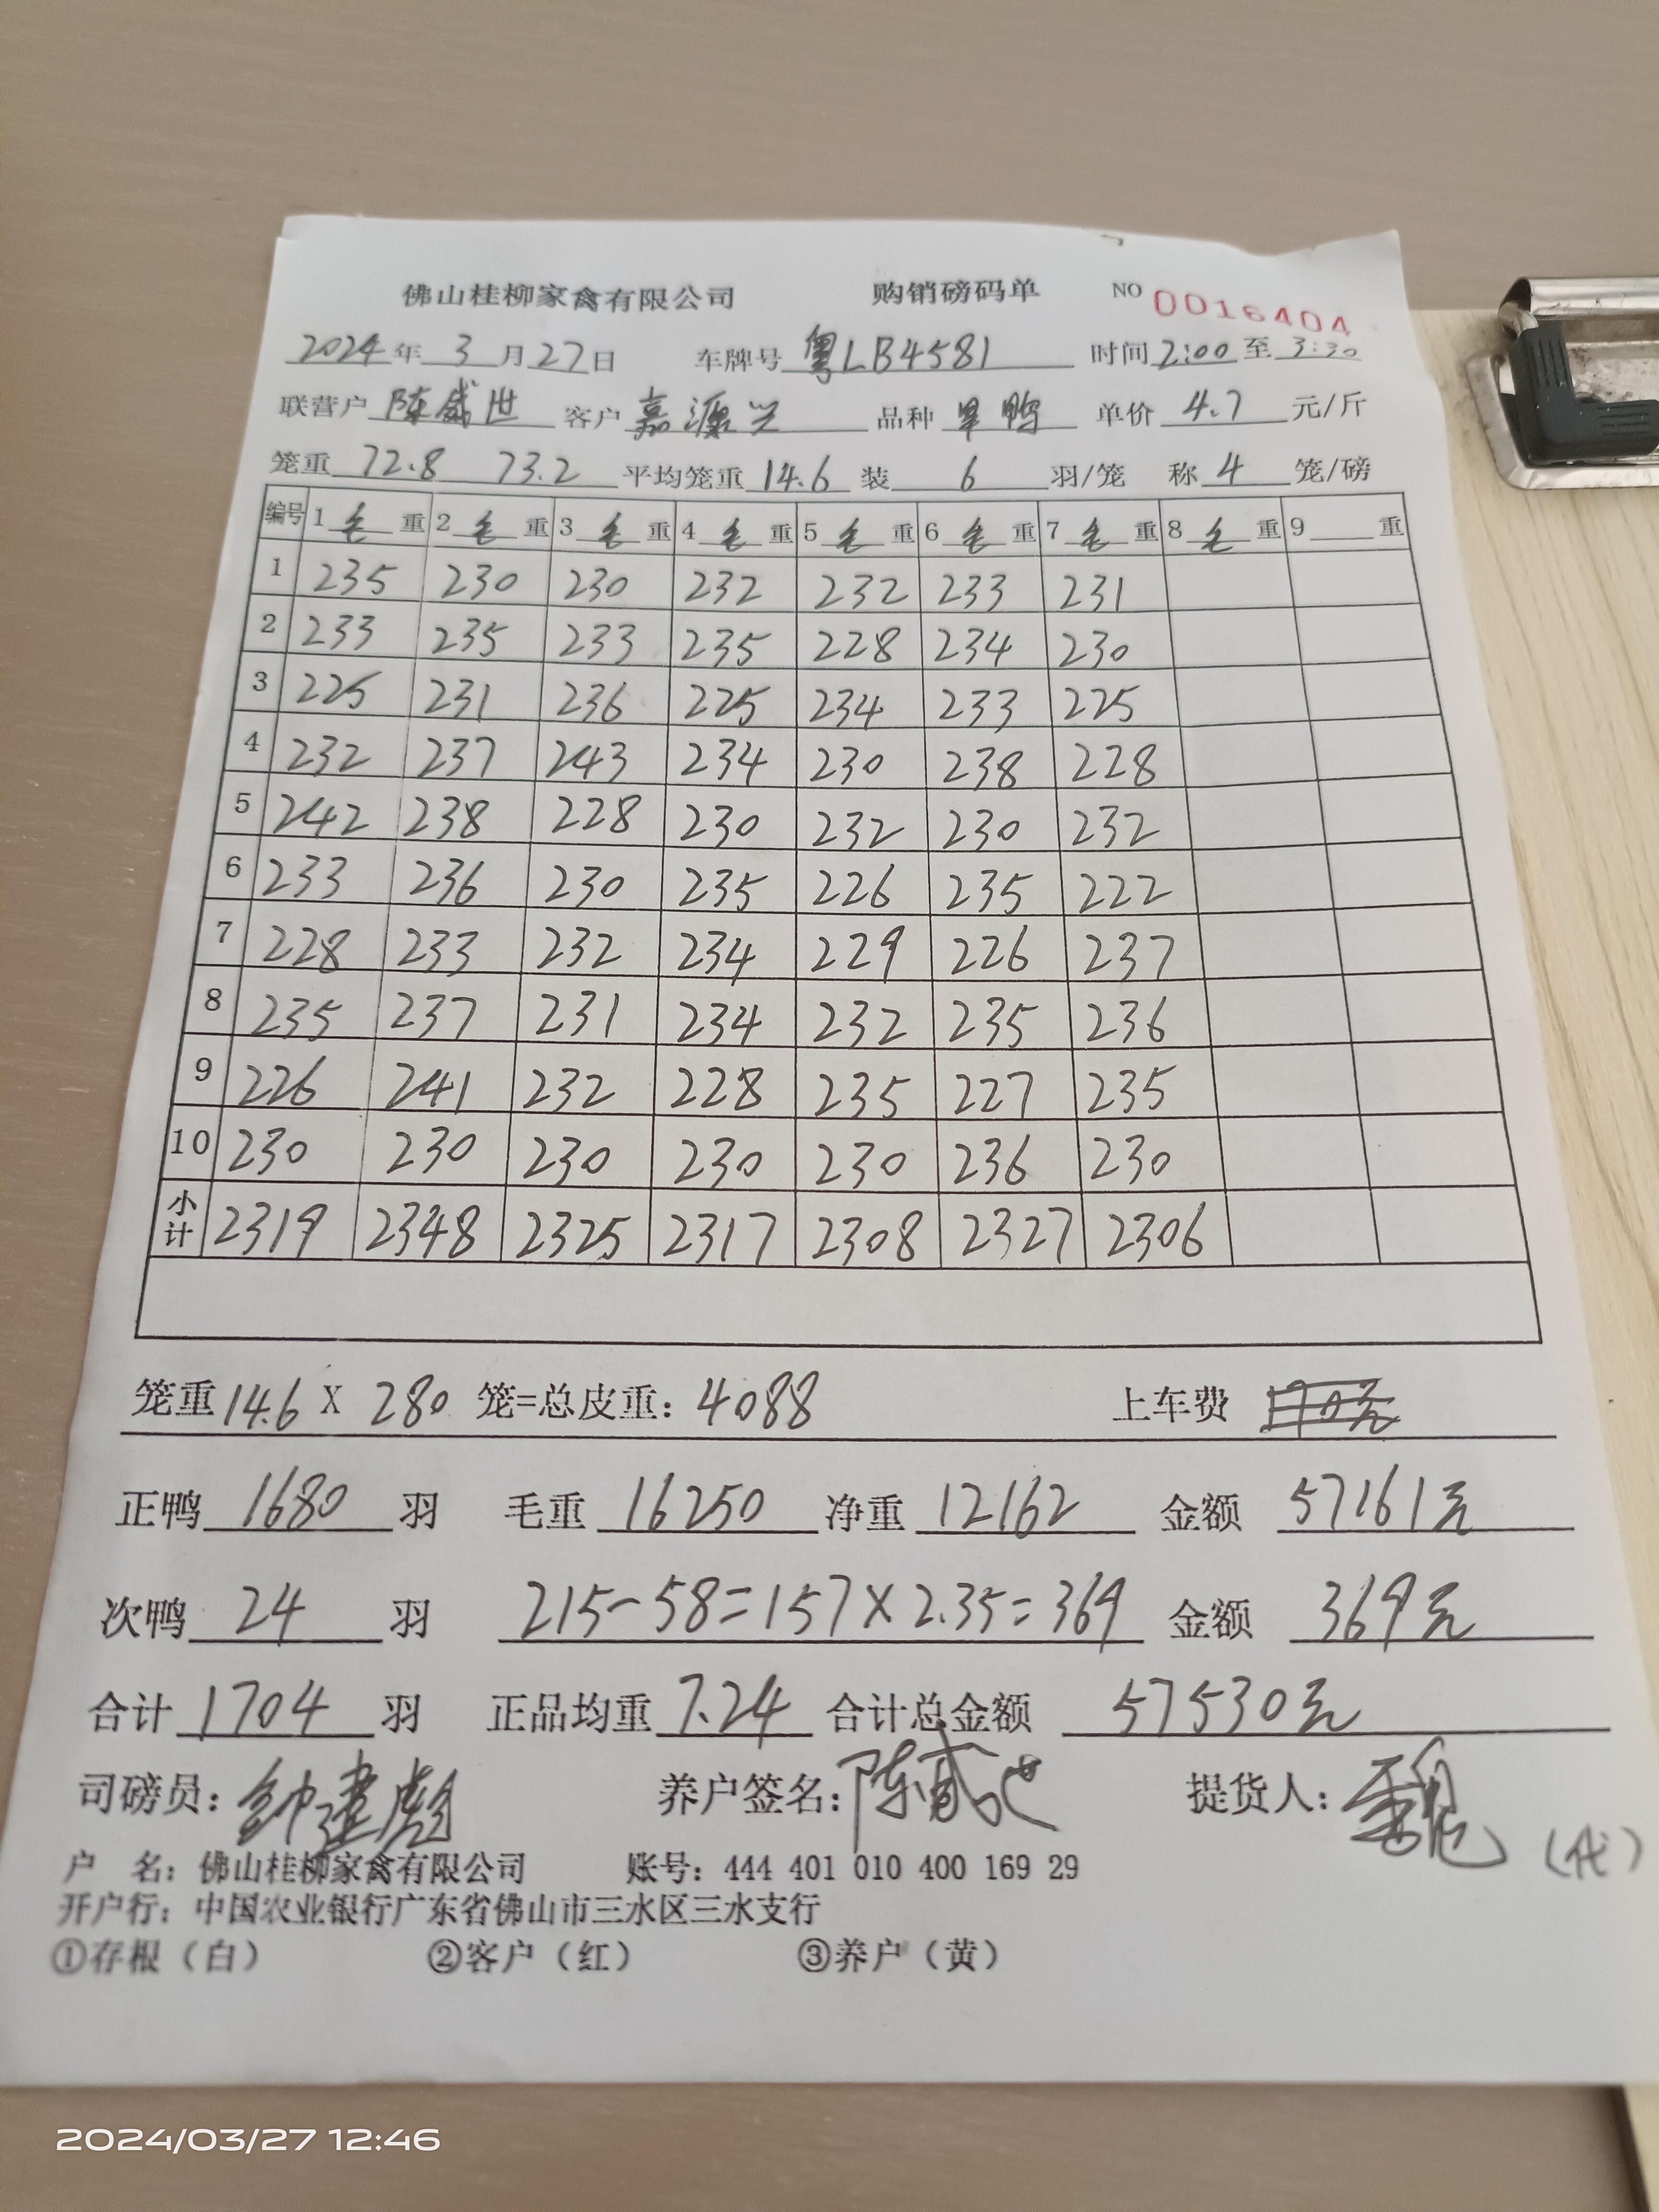 佛山桂柳家禽有限公司 购销磅码单 NO 0016404
2024年 3 月 27 日 车牌号 粤LB4581 时间 2:00 至 3:30
联营户 陈威世 客户 嘉源兴 品种 旱鸭 单价 4.7 元/斤
笼重 72.8 73.2 平均笼重 14.6 装 6 羽/笼 称 4 笼/磅
编号 1 毛 重 2 毛 重 3 毛 重 4 毛 重 5 毛 重 6 毛 重 7 毛 重 8 毛 重 9 重
1 235 230 230 232 232 233 231
2 233 235 233 235 228 234 230
3 225 231 236 225 234 233 225
4 232 237 243 234 230 238 228
5 242 238 228 230 232 230 232
6 233 236 230 235 226 235 222
7 228 233 232 234 229 226 237
8 235 237 231 234 232 235 236
9 226 241 232 228 235 227 235
10 230 230 230 230 230 236 230
小计 2319 2348 2325 2317 2308 2327 2306
笼重 14.6 X 280 笼=总皮重: 4088 上车费
正鸭 1680 羽 毛重 16250 净重 12162 金额 57161元
次鸭 24 羽 215-58=157×2.35=369 金额 369元
合计 1704 羽 正品均重 7.24 合计总金额 57530元
司磅员: 钟建彪 养户签名: 陈威世 提货人: 魏 (代)
户 名: 佛山桂柳家禽有限公司 账号: 444 401 010 400 169 29
开户行: 中国农业银行广东省佛山市三水区三水支行
①存根（白） ②客户（红） ③养户（黄）
2024/03/27 12:46